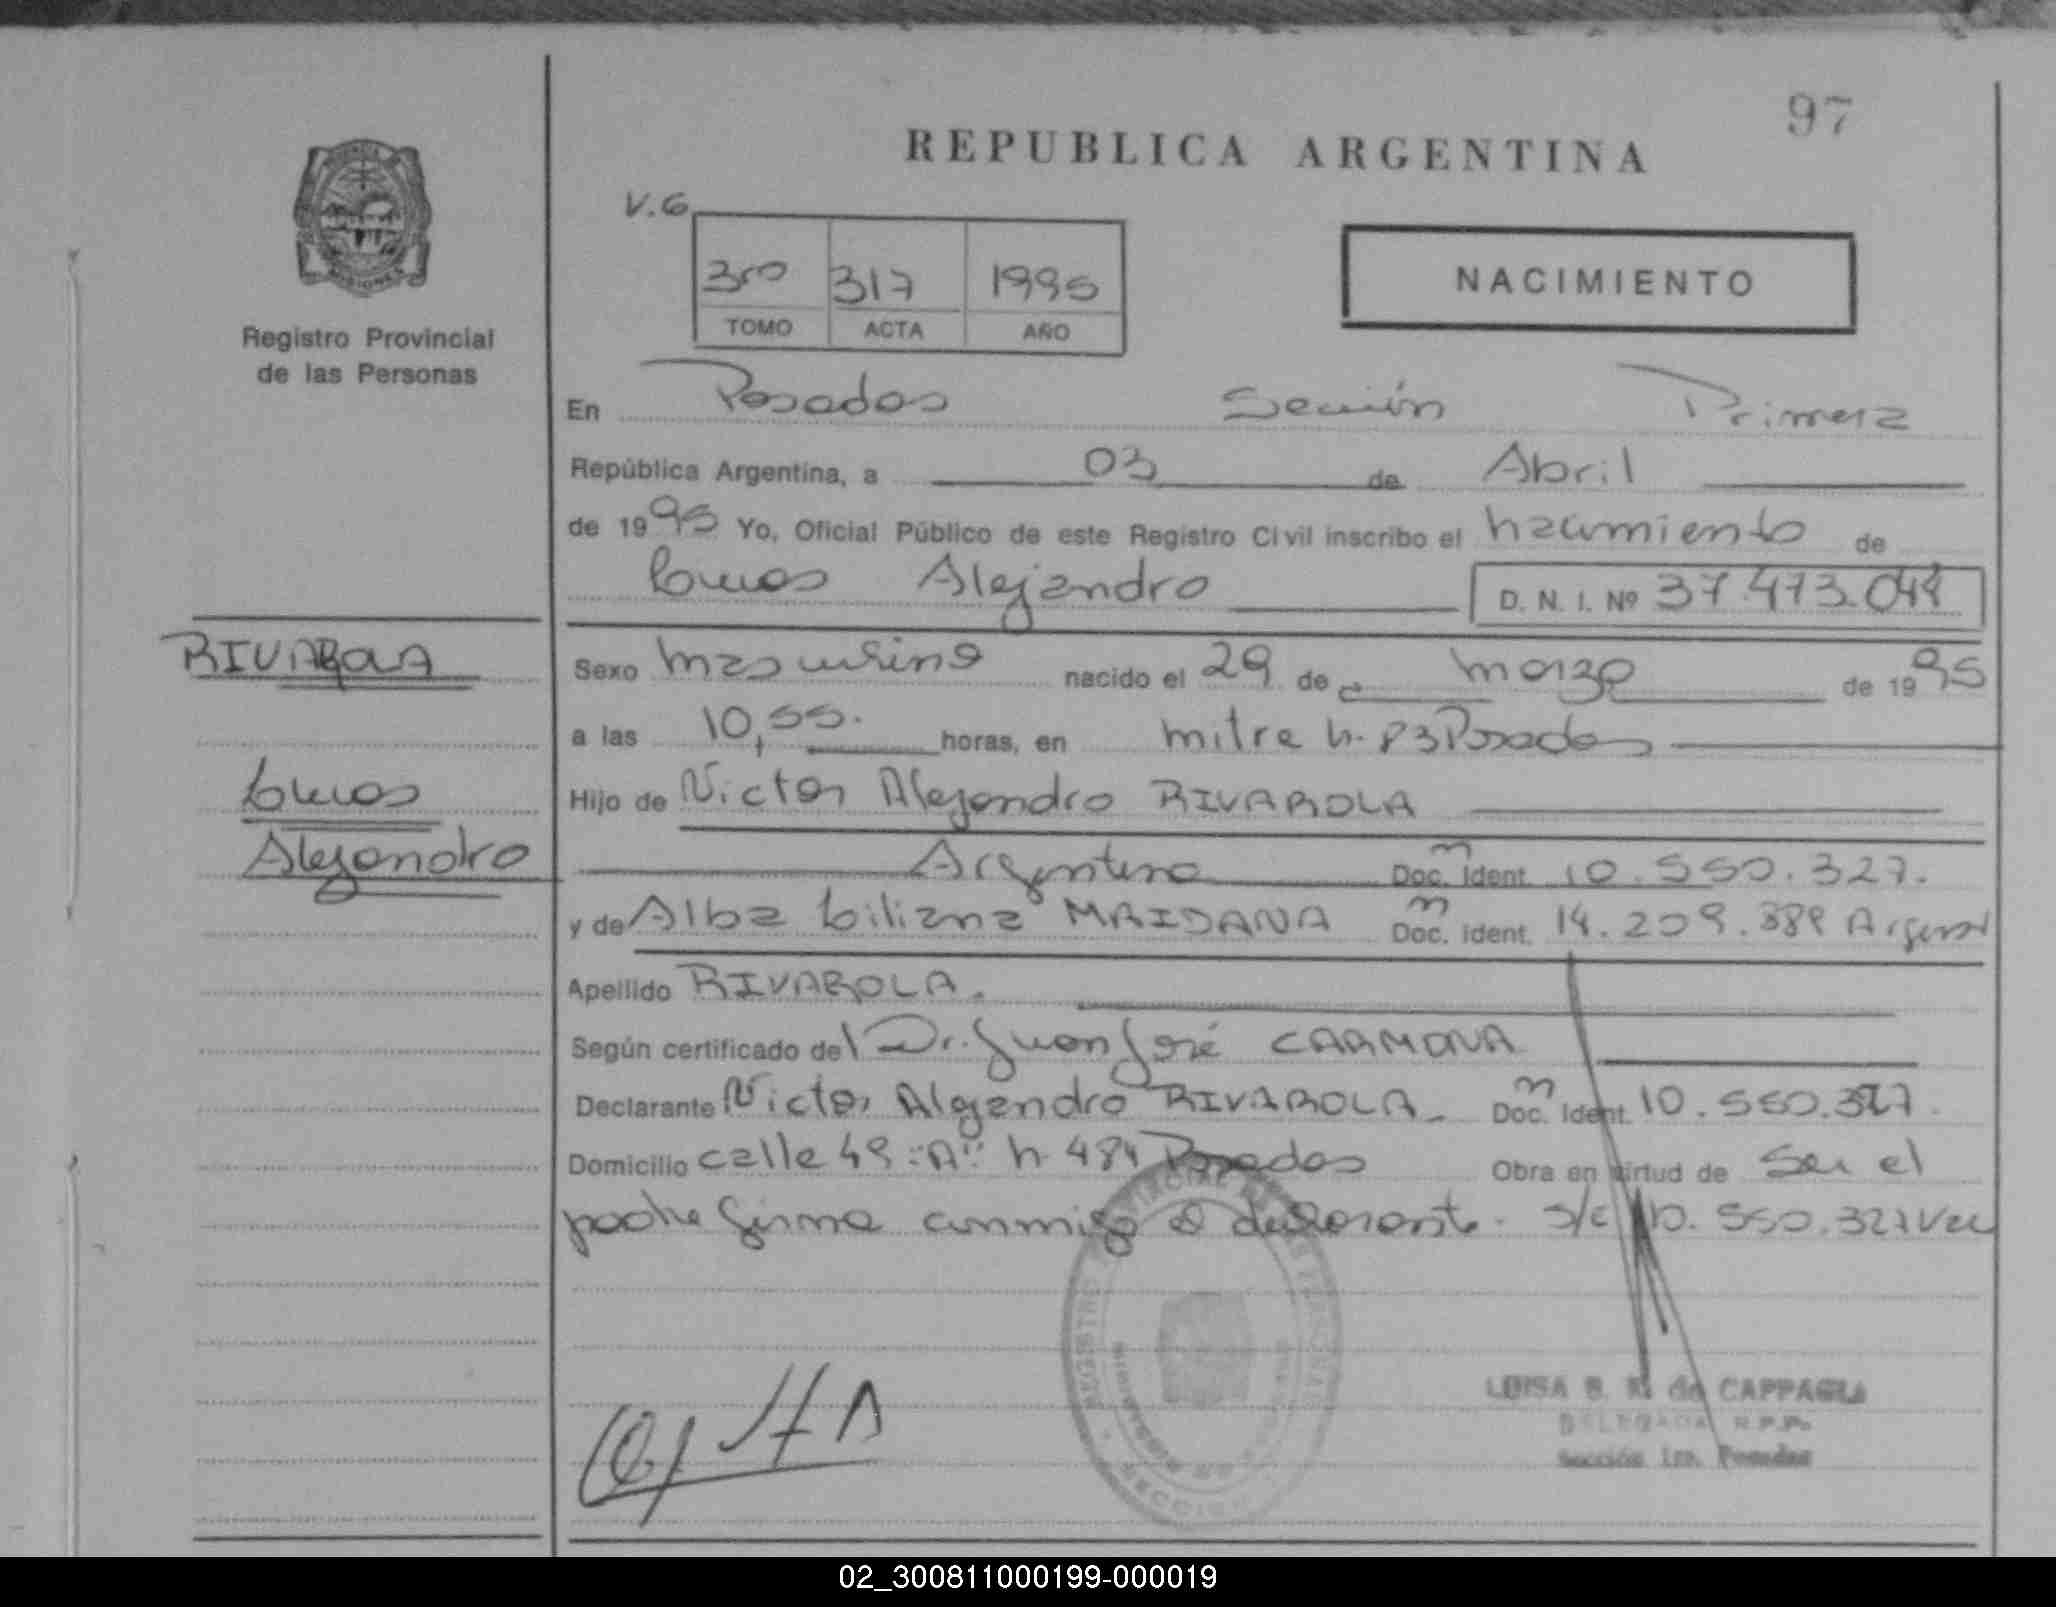 97
REPUBLICA ARGENTINA
V.6
3ro 317 1995
TOMO ACTA AÑO
NACIMIENTO
Registro Provincial
de las Personas
En Posadas Sección Primera
República Argentina, a 03 de Abril
de 1995 Yo, Oficial Público de este Registro Civil inscribo el nacimiento de
Lucas Alejandro D. N. I. Nº 37.473.044
RIVAROLA
Sexo masculino nacido el 29 de marzo de 1995
a las 10,55. horas, en mitre n. 83 Posadas
Lucas
Hijo de Victor Alejandro RIVAROLA
Alejandro
Argentino Doc. Ident. m 10.550.327.
y de Alba Liliana MAIDANA Doc. Ident. m 14.209.889 Argent
Apellido RIVAROLA.
Según certificado del Dr. Juan José CARMONA
Declarante Victor Alejandro RIVAROLA Doc. Ident. m 10.550.327.
Domicilio calle 49 "A" n 484 Posadas Obra en virtud de ser el
padre firma conmigo el declarante. s/c 10.550.327 Vale
REGISTRO PROVINCIAL DE LAS PERSONAS
SECCION
LUISA B. R. de CAPPAGLI
DELEGADA R.P.P.
Sección 1ra. Posadas
02_300811000199-000019